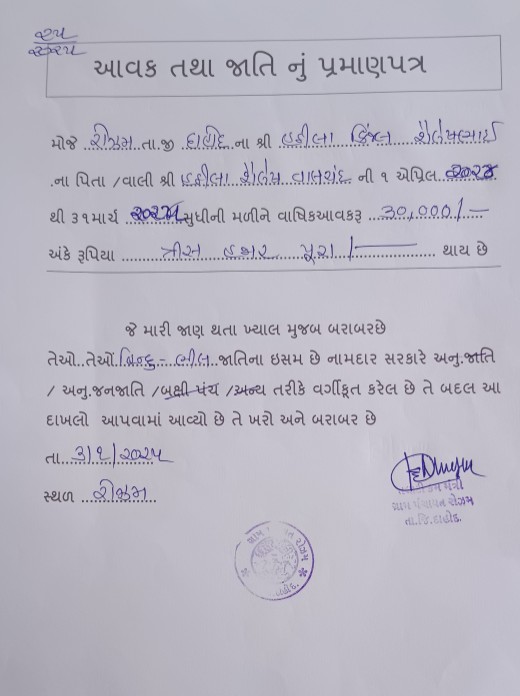 ૨૫
આવક તથા જાતિ નું પ્રમાણપત્ર
મોજે ..રોઝમ..તા.જી દાહોદ ના શ્રી ..હઠીલા કિંજલ શૈલેષભાઈ
.ના પિતા /વાલી શ્રી હઠીલા શૈલેષ ની ૧ એપ્રિલ ..૨૦૨૪
થી ૩૧માર્ચ સુધીની મળીને વાષિકઆવકરૂ ...30,000/-
અંકે રૂપિયા ...........ત્રીસ હજાર પૂરા/- ............. થાય છે
જે મારી જાણ થતા ખ્યાલ મુજબ બરાબરછે
તેઓ..તેઓ.હિન્દુ-ભીલ..જાતિના ઇસમ છે નામદાર સરકારે અનુ.જાતિ
/ અનુ.જનજાતિ /બક્ષી પંચ /અન્ય તરીકે વર્ગીકૃત કરેલ છે તે બદલ આ
દાખલો આપવામાં આવ્યો છે તે ખરો અને બરાબર છે
તા...૩/૧/૨૦૨૫
સ્થળ ..રોઝમ....
મંત્રી
ગ્રામ પંચાયત રોઝમ
તા.જિ.દાહોદ.